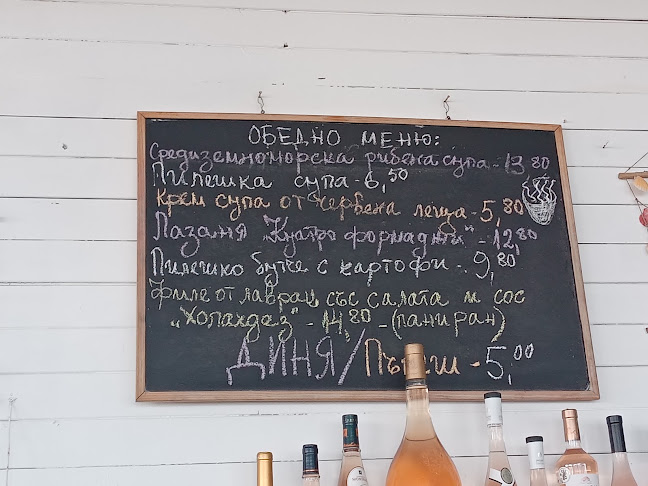 ОБЕДНО МЕНЮ:
Средиземноморска рибена супа - 13,80
Пилешка супа - 6,50
Крем супа от червена леща - 5,80
Лазаня „Куатро формаджи" - 12,80
Пилешко бутче с картофи - 9,80
Филе от лаврак със салата и сос
„Холандез" - 14,80 - (паниран)
ДИНЯ/Пъпеш - 5,00